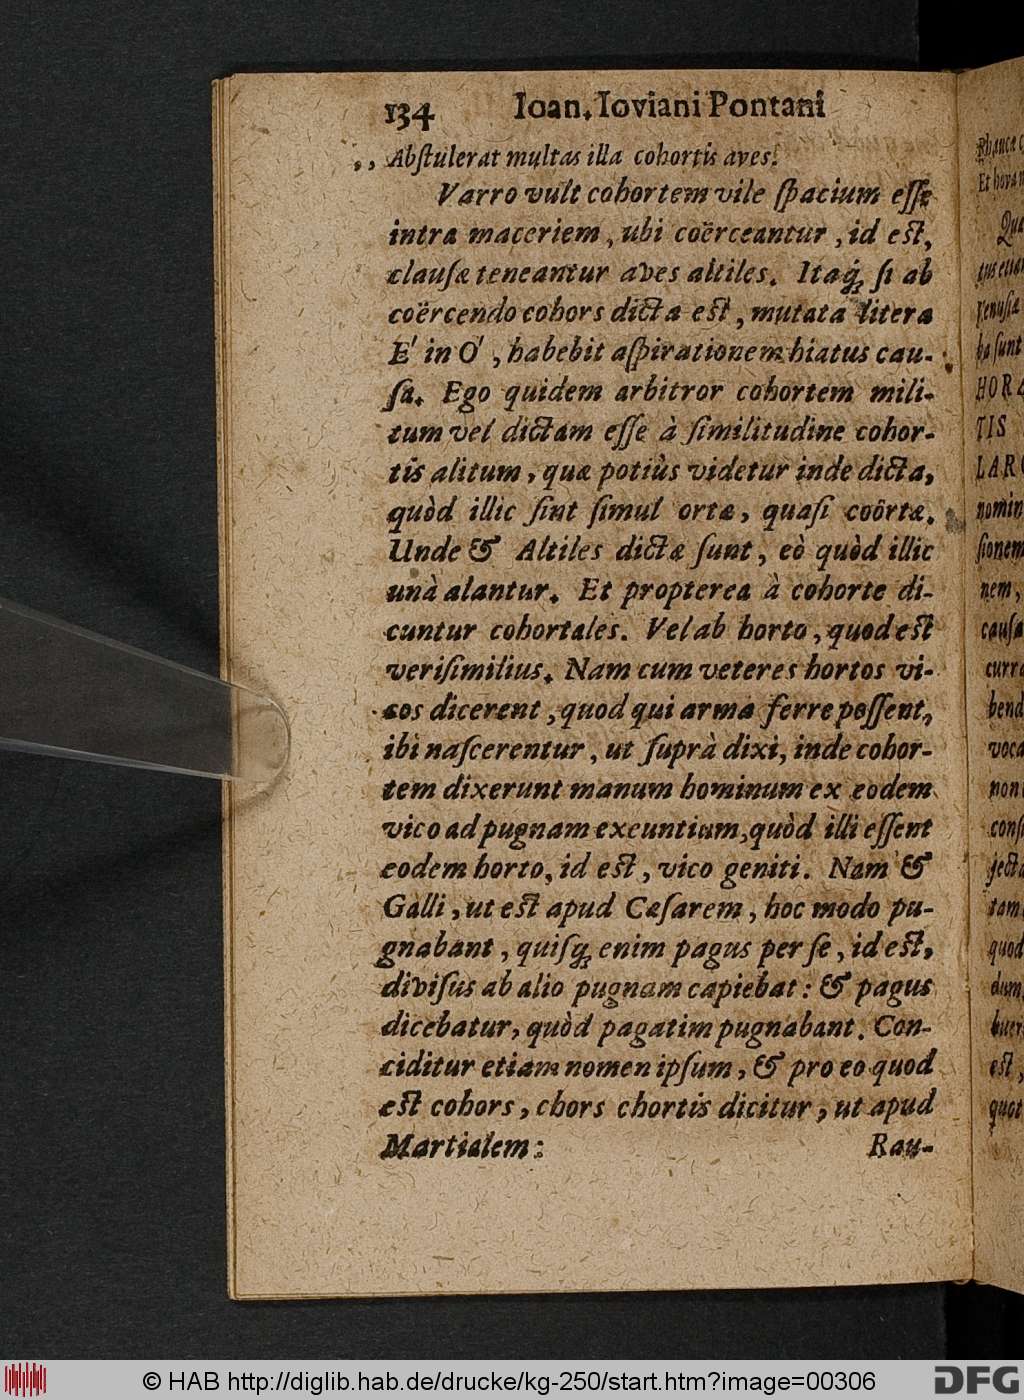 134 Ioan. Ioviani Pontani
,, Abstulerat multas illa cohortis aves.
Varro vult cohortem vile spacium esse
intra maceriem, ubi coërceantur, id est,
clausæ teneantur aves altiles. Itaq́; si ab
coërcendo cohors dicta est, mutata litera
E' in O', habebit aspirationem hiatus cau-
sa. Ego quidem arbitror cohortem mili-
tum vel dictam esse à similitudine cohor-
tis alitum, quæ potiùs videtur inde dicta,
quòd illic sint simul ortæ, quasi coörtæ.
Unde & Altiles dictæ sunt, eò quòd illic
unà alantur. Et propterea à cohorte di-
cuntur cohortales. Vel ab horto, quod est
verisimilius. Nam cum veteres hortos vi-
cos dicerent, quod qui arma ferre possent,
ibi nascerentur, ut suprà dixi, inde cohor-
tem dixerunt manum hominum ex eodem
vico ad pugnam exeuntium, quòd illi essent
eodem horto, id est, vico geniti. Nam &
Galli, ut est apud Cæsarem, hoc modo pu-
gnabant, quisq; enim pagus per se, id est,
divisus ab alio pugnam capiebat: & pagus
dicebatur, quòd pagatim pugnabant. Con-
ciditur etiam nomen ipsum, & pro eo quod
est cohors, chors chortis dicitur, ut apud
Martialem:
Rau-
Et hora
Qua
HORA
TIS
LARG
nomin
sionem
nem,
causa
curre
bend
voca
non
cons
jecta
tam
quod
dum
buer
est,
quot
© HAB http://diglib.hab.de/drucke/kg-250/start.htm?image=00306
DFG